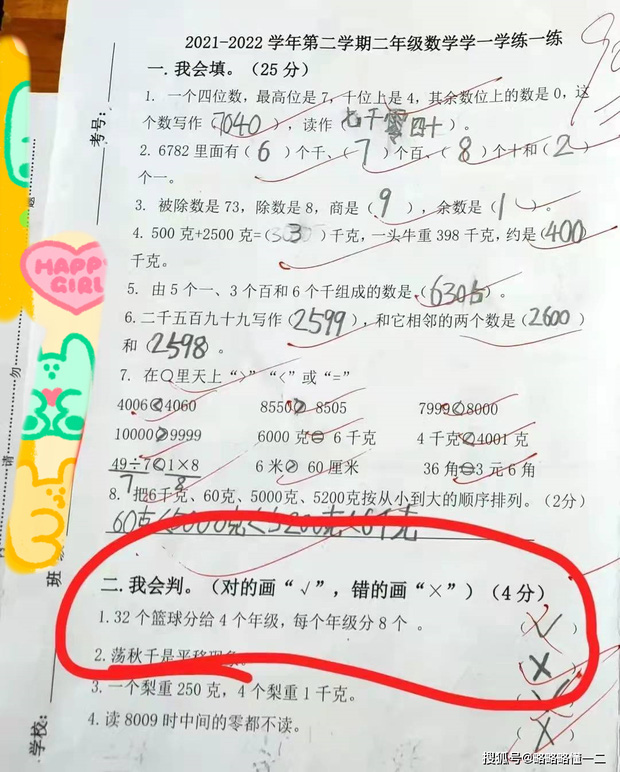 2021-2022学年第二学期二年级数学学一学练一练
一.我会填。（25分）
1. 一个四位数，最高位是7，千位上是4，其余数位上的数是0，这
个数写作（7040），读作（七千零四十）。
2. 6782里面有（6）个千、（7）个百、（8）个十和（2）
个一。
3. 被除数是73，除数是8，商是（9），余数是（1）。
4. 500克+2500克=（3）千克，一头牛重398千克，约是（400）
千克。
5. 由5个一、3个百和6个千组成的数是（6305）。
6.二千五百九十九写作（2599），和它相邻的两个数是（2600）
和（2598。
7. 在Q里天上“>”“<”或“=”
4006<4060 8550>8505 7999<8000
10000>9999 6000克=6千克 4千克<4001克
49÷7<1×8 6米>60厘米 36角=3元6角
7 8
8. 把6千克、60克、5000克、5200克按从小到大的顺序排列。（2分）
60克<5000克<5200克<6千克
二.我会判。（对的画“√”，错的画“×”）（4分）
1.32个篮球分给4个年级，每个年级分8个 。（ ）
2.荡秋千是平移现象。（×）
3.一个梨重250克，4个梨重1千克。（ ）
4.读8009时中间的零都不读。（×）
考号：
班
学校：
请
勿
题
HAPPY
GIRL
搜狐号@略略略橦一二